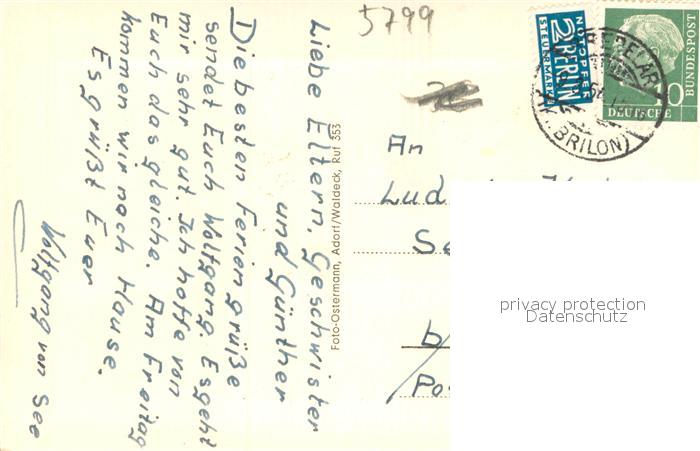 5799
Liebe Eltern, Geschwister
und Günther
Die besten Feriengrüße
sendet Euch Wolfgang. Es geht
mir sehr gut. Ich hoffe von
Euch das gleiche. Am Freitag
kommen wir nach Hause.
Es grüßt Euer
Wolfgang von See
Foto-Ostermann, Adorf/Waldeck, Ruf 353
NOTOPFER
2 BERLIN
STEUERMARKE
DEUTSCHE
BUNDESPOST
10
BREDELAR
(KR. BRILON)
An
Lud
Se
b/
Po
privacy protection
Datenschutz